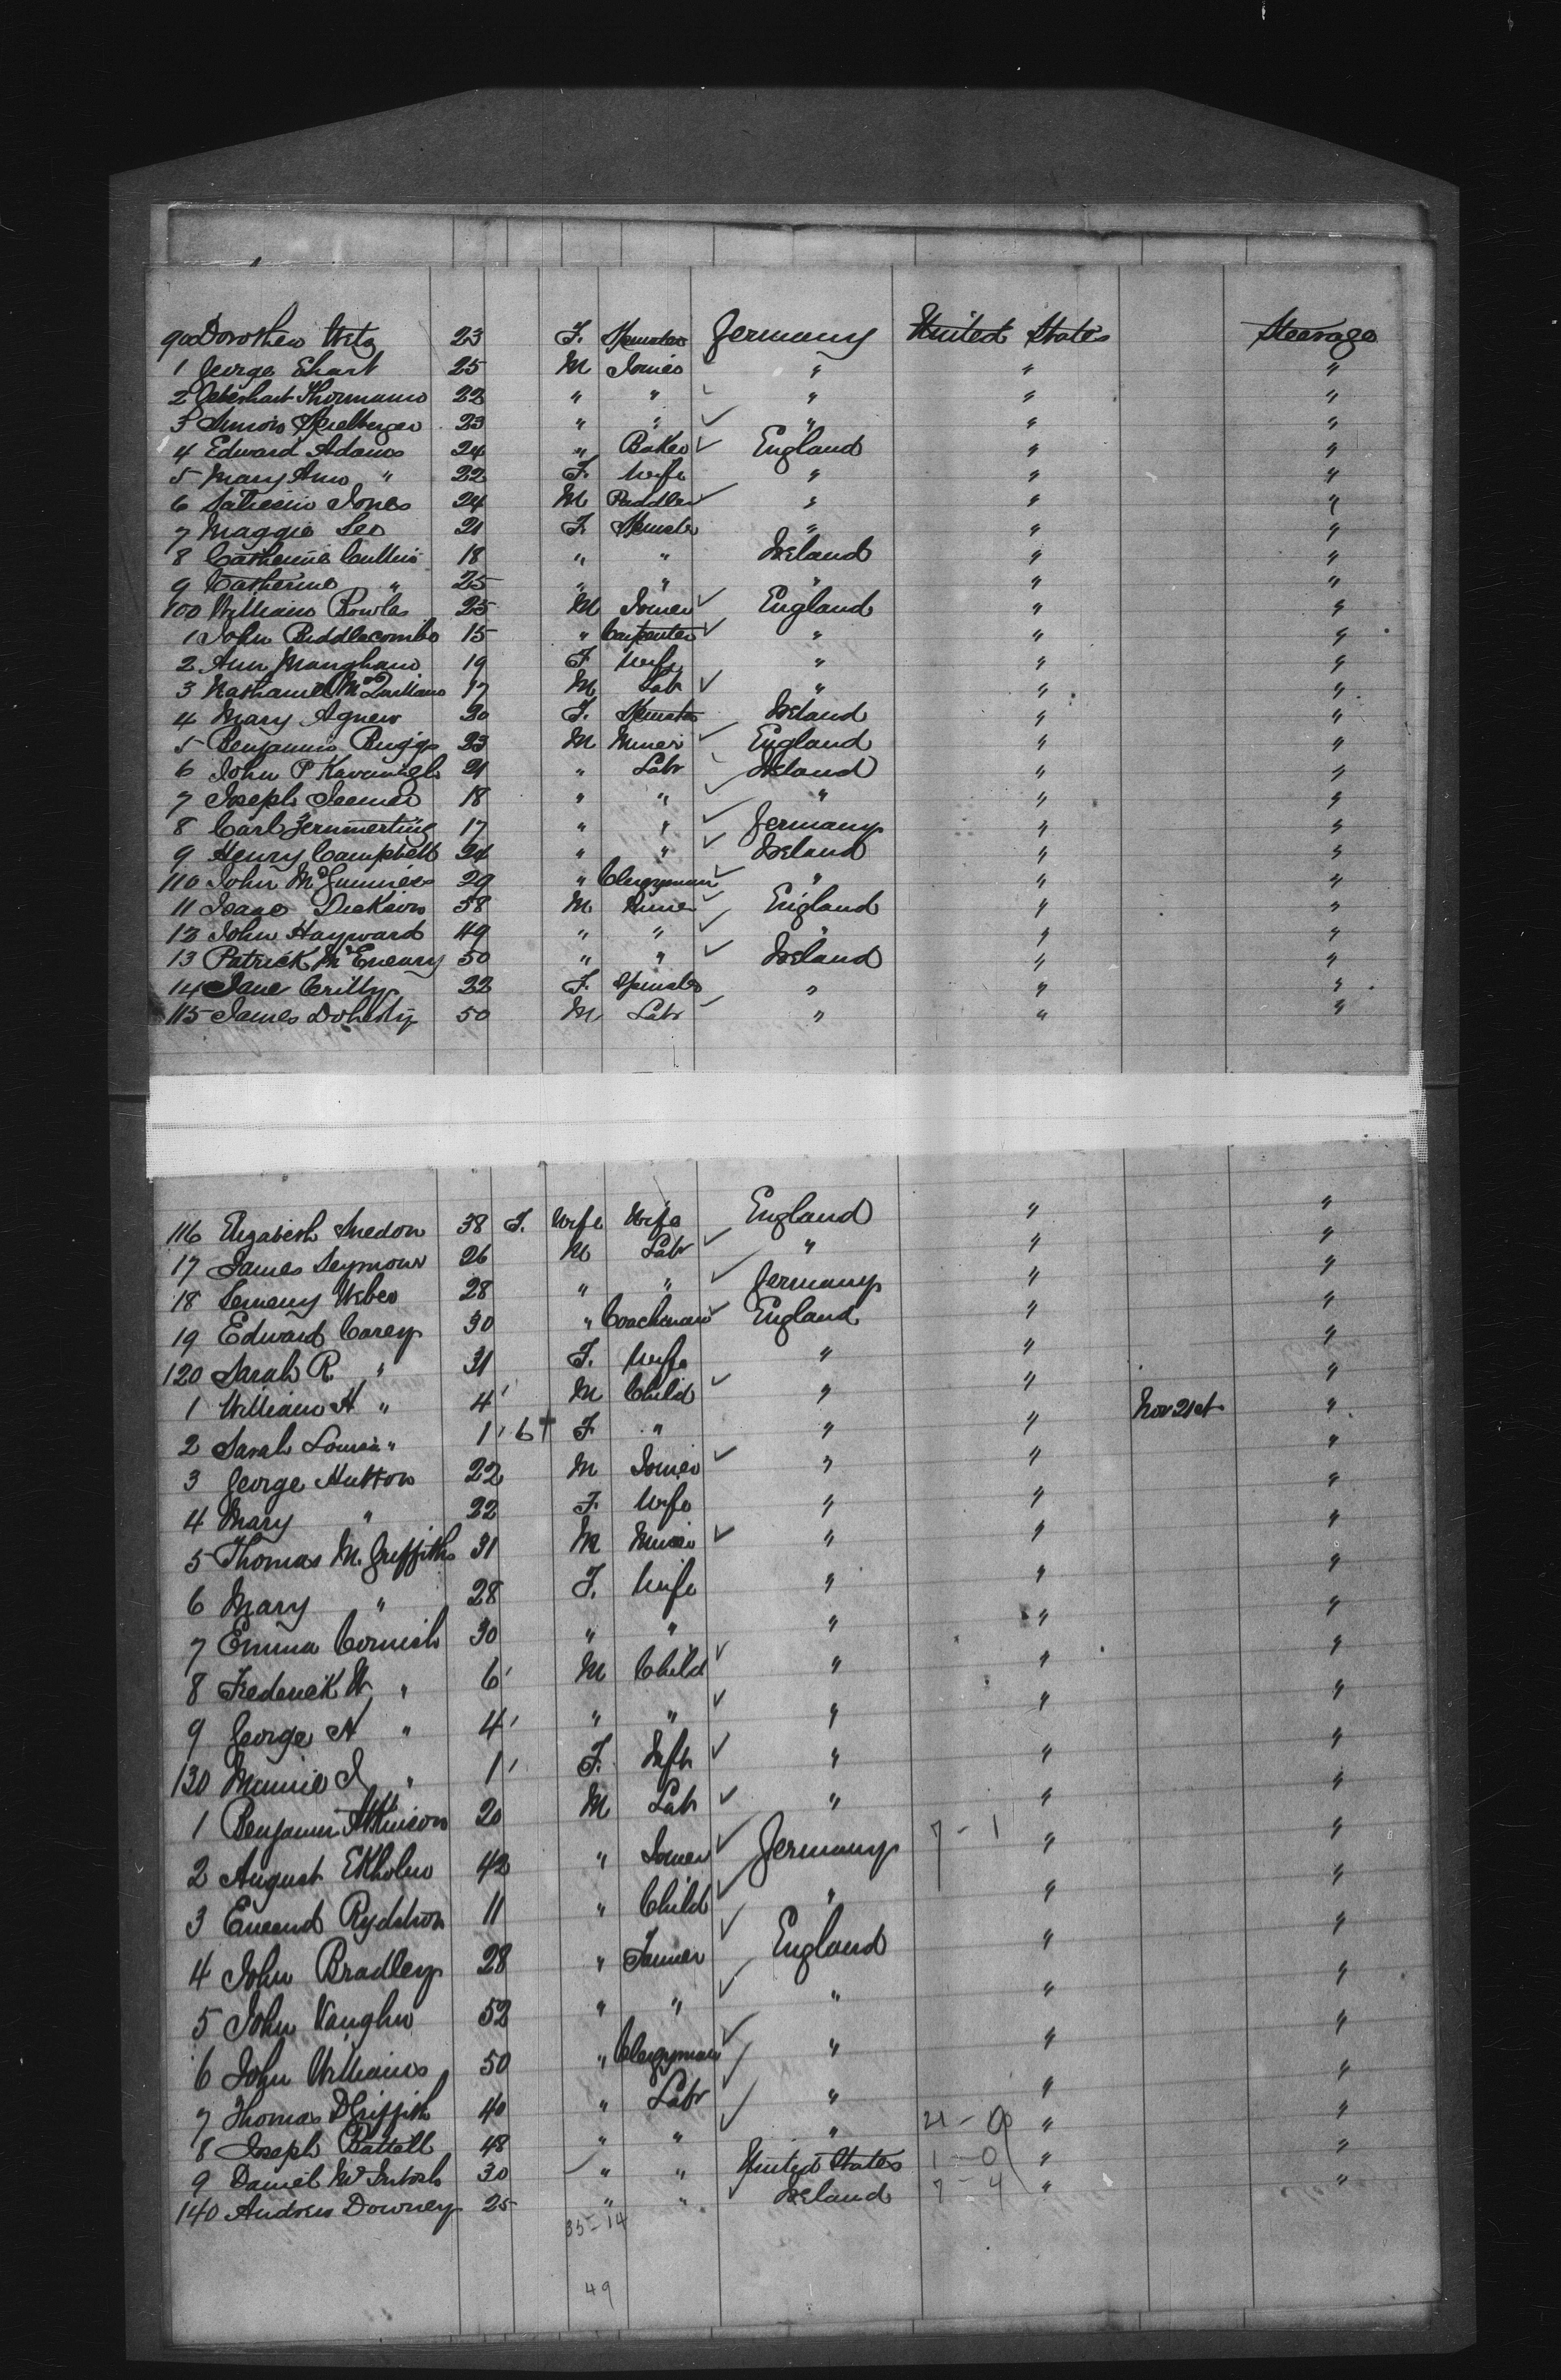 90 Dorothea Wetz 23 F. Spinster Germany United States Steerage
1 George Ehart 25 M Joiner " " "
2 Thormann 22 " " " " "
3 Spielberger 23 " " " " "
4 Edward Adams 24 " Baker England " "
5 Mary Ann " 22 F. Wife " " "
6 Jones 24 M Puddler " " "
7 Maggie Lee 21 F. Spinster " " "
8 Catherine Cullin 18 " " Ireland " "
9 Catherine " 25 " " " " "
100 William Rowles 25 M Joiner England " "
1 John Biddlecombe 15 " Carpenter " " "
2 Ann Mangham 19 F Wife " " "
3 Nathaniel McQuillans 17 M Lab " " "
4 Mary Agnew 20 F. Spinster Ireland " "
5 Benjamin Briggs 23 M Miner England " "
6 John P Kavanagh 21 " Labr Ireland " "
7 Joseph 18 " " " " "
8 Carl 17 " " Germany " "
9 Henry Campbell 24 " " Ireland " "
110 John 29 " Clergyman " " "
11 Isaac Dickson 58 M Miner England " "
12 John Hayward 49 " " " " "
13 Patrick McEneary 50 " " Ireland " "
14 Jane Crilly 22 F. Spinster " " "
115 James Doherty 50 M Labr " " "
116 Elizabeth Snedon 38 F. Wife Wife England " "
17 James Seymour 26 M Labr " " "
18 Weber 28 " " Germany " "
19 Edward Carey 30 " Coachman England " "
120 Sarah R. " 31 F. Wife " " "
1 William H " 4 M Child " " Nov 21st "
2 Sarah Louisa " 1 6 F " " " "
3 George Hutton 22 M Joiner " " "
4 Mary " 22 F. Wife " " "
5 Thomas M. Griffiths 31 M Miner " " "
6 Mary " 28 F. Wife " " "
7 Emma Cornish 30 " " " " "
8 Frederick W. " 6 M Child " " "
9 George A " 4 " " " " "
130 Minnie J " 1 F. Inft " " "
1 Benjamin Atkinson 20 M Lab " " "
2 August Ekholm 42 " Joiner Germany 7 - 1 " "
3 Rydstrom 11 " Child " " "
4 John Bradley 28 " Farmer England " "
5 John Vaughn 52 " " " " "
6 John Williams 50 " Clergyman " " "
7 Thomas D Griffith 40 " Labr " " "
8 Joseph Battell 48 " " " 21 - 0 " "
9 Daniel McIntosh 30 " " United States 1 - 0 " "
140 Andrew Downey 25 " " Ireland 7 - 4 " "
35 - 14
49